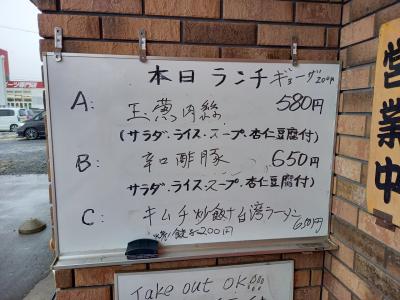 本日 ランチ ギョーザ200円
A: 玉葱肉絲 580円
(サラダ・ライス・スープ・杏仁豆腐付)
B: 辛口酢豚 650円
サラダ・ライス・スープ・杏仁豆腐付)
C: キムチ炒飯+台湾ラーメン
餃子200円 650円
Take out OK!!!
営業中